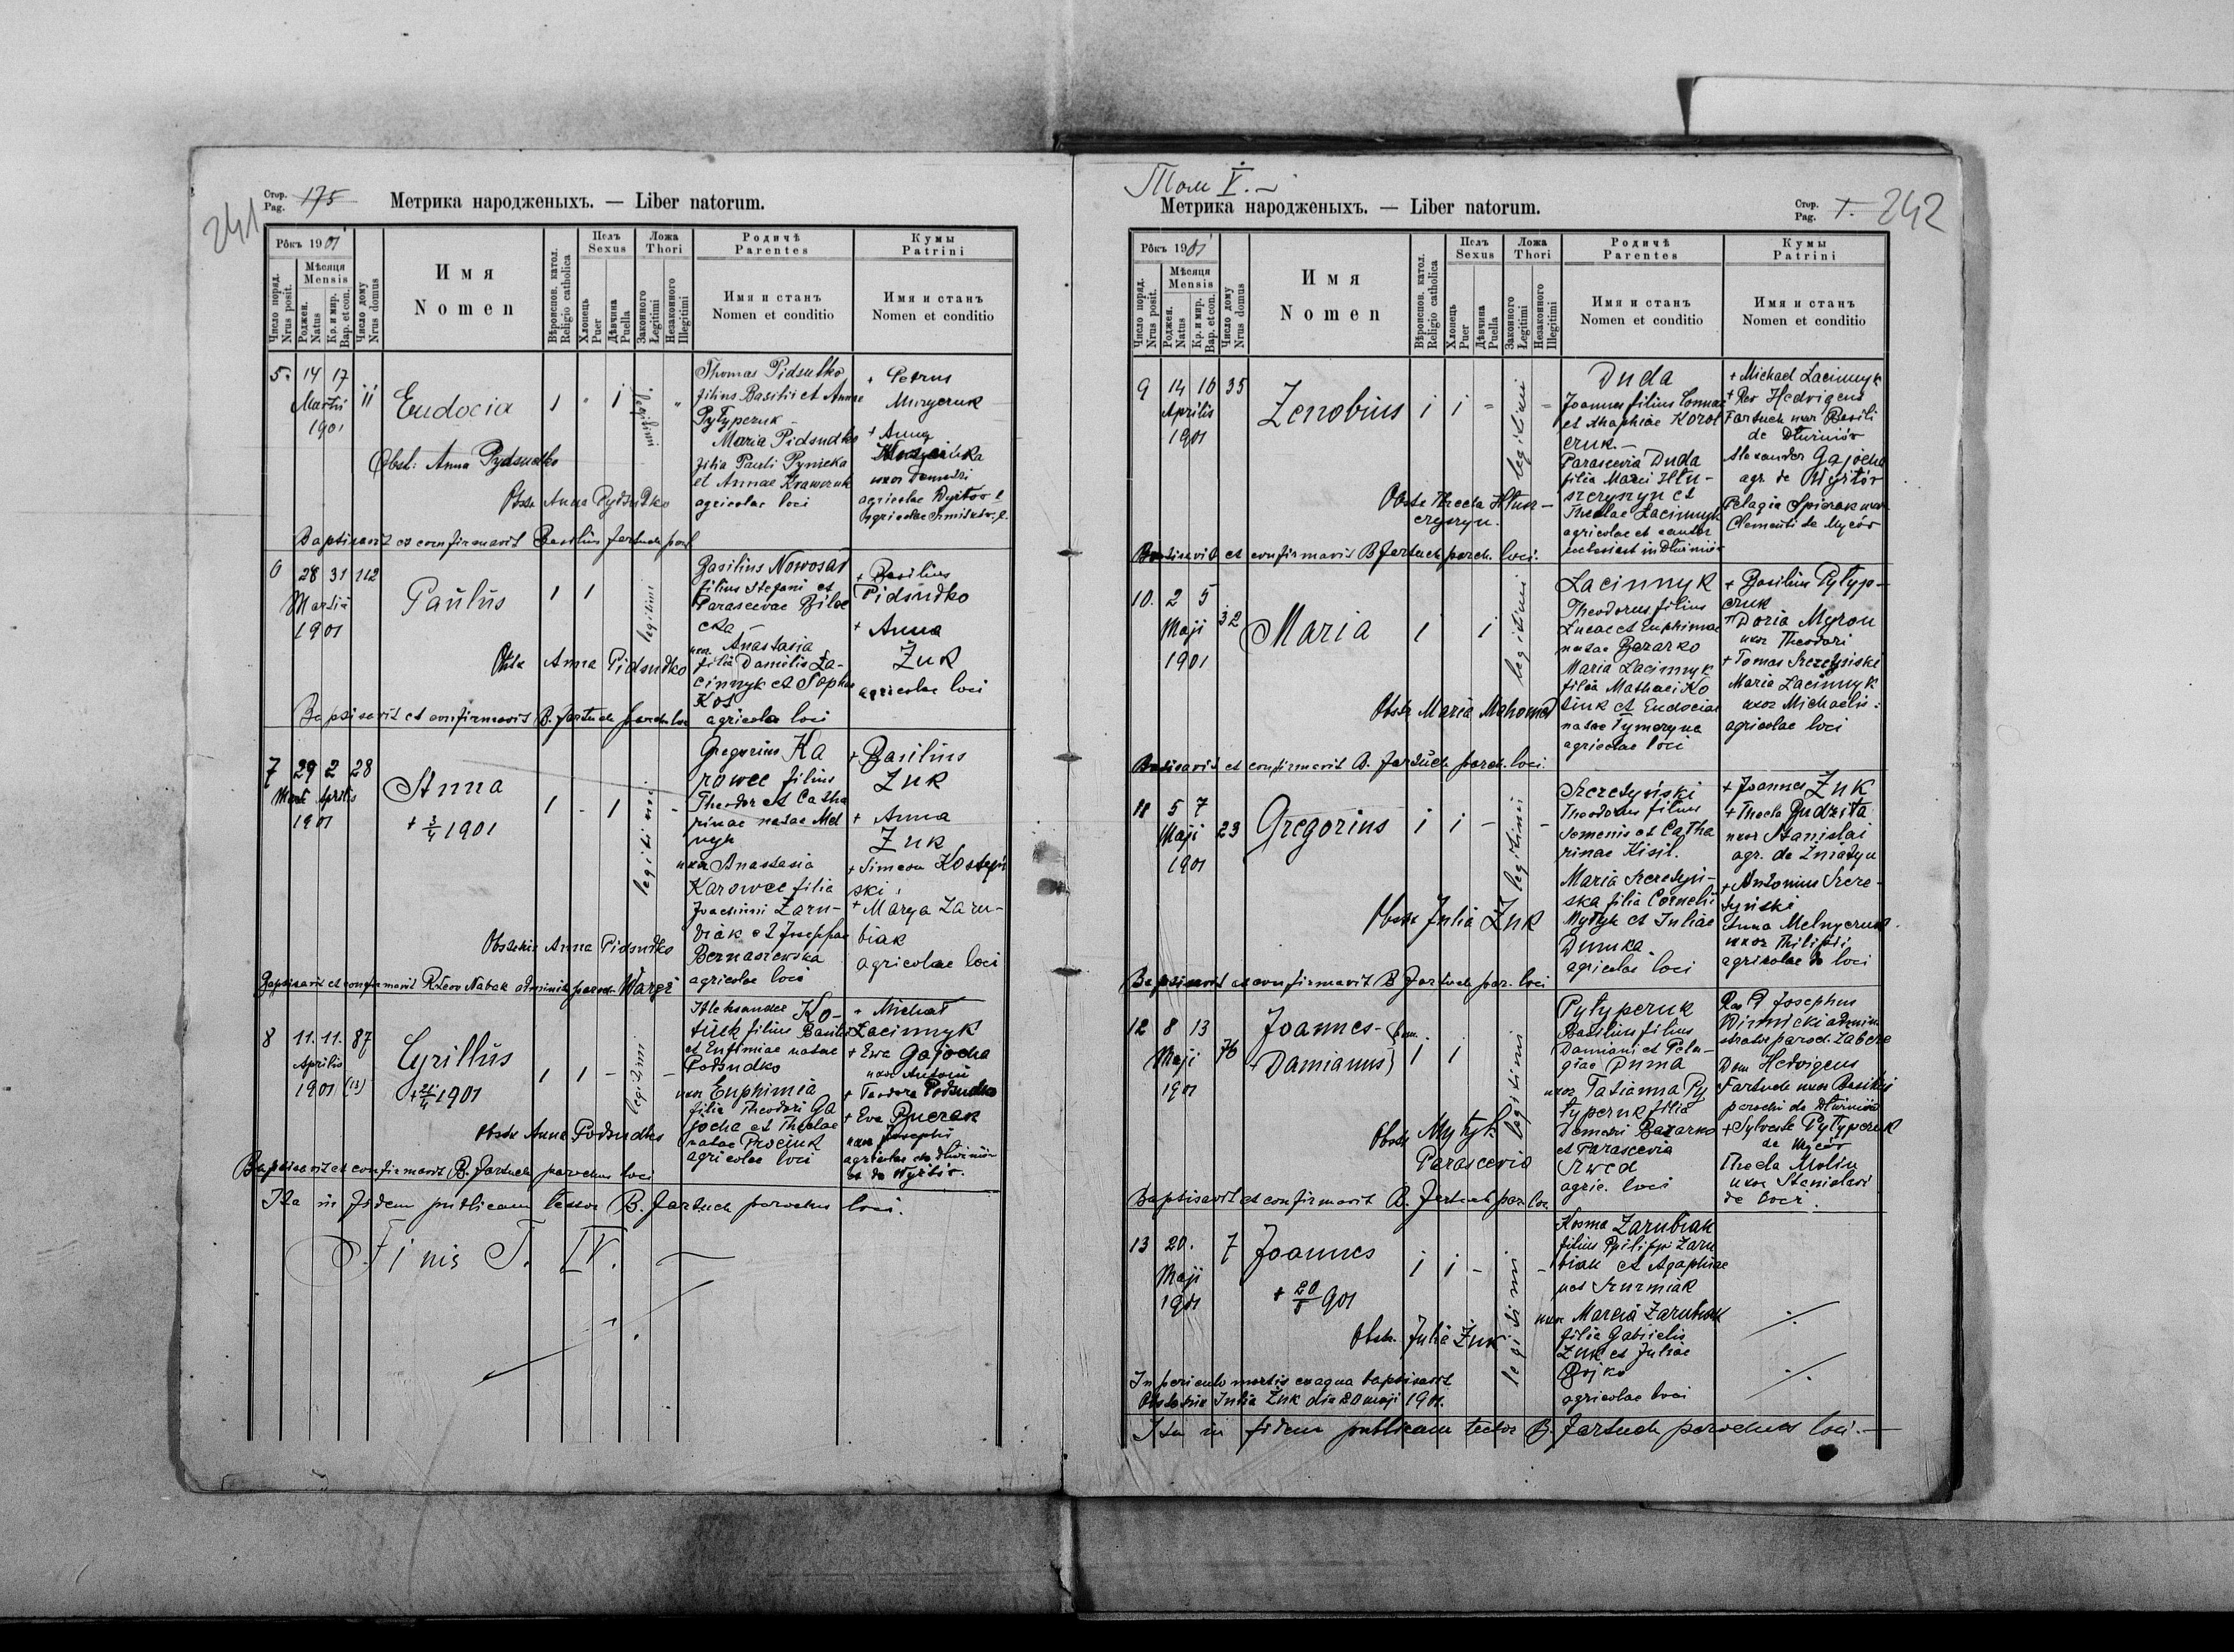 241
Стор. Pag. 175
Метрика народженыхъ. — Liber natorum.
Рôкъ 1901
Число поряд. Nrus posit.
Мѣсяця Mensis
Роджен. Natus
Кр. и мир. Bap. et con.
Число дому Nrus domus
Имя
Nomen
Вѣроиспов. катол. Religio catholica
Пелъ Sexus
Хлопець Puer
Дѣвчина Puella
Ложа Thori
Законного Legitimi
Незаконного Illegitimi
Родичѣ Parentes
Имя и станъ
Nomen et conditio
Кумы Patrini
Имя и станъ
Nomen et conditio
5. 14 17 11
Martii
1901
Eudocia
1 1
legitimi
Thomas Pidsudko
filius Basilii et Annae
Pyłypczuk
Maria Pidsudko
filia Pauli
et Annae Krawczuk
agricolae loci
+ Petrus
+ Anna
uxor
agricolae
Obst: Anna Pydsudko
Obste Anna Pydsudko
Baptisavit et confirmavit Basilius Fartuch par
6 28 31 112
Martii
1901
Paulus
1 1
legitimi
Basilius Nowosad
filius Stefani et
Parascevae Bilec
cka
uxor Anastasia
filia Danielis Ła-
cinnyk et Sophiae
Kos
agricolae loci
+ Basilius
Pidsudko
+ Anna
Żuk
agricolae loci
Obste Anna Pidsudko
Baptisavit et confirmavit B. Fartuch paroch. loci
7 29 2 28
Martii Aprilis
1901
Anna
+ 3/4 1901
1 - 1 -
legitimi
Gregorius Ka
rawec filius
Theodor et Catha
rinae natae Mel
nyk
uxor Anastasia
Karawec filia
Joachimi Zaru-
biak et Josephae
Bernasiewska
agricolae loci
+ Basilius
Żuk
+ Anna
Żuk
+ Simeon
ski
+ Marya Zaru-
biak
agricolae loci
Obstetrix Anna Pidsudko
Baptisavit et confirmavit Nabak administ. paroch. Waręż
8 11. 11. 87
Aprilis
1901 (13)
Cyrillus
+ 21/4 1901
1 1 - -
legitimi
Aleksander Ko-
tiuk filius Basilii
et Eufimiae natae
Podsudko
uxor Euphimia
filia Theodori Ga
jocha et Theclae
natae Prociuk
agricolae loci
+ Michał
Łacinnyk
+ Ewa Gajocha
uxor Antonii
+ Teodora Podsudko
+ Eva
uxor Josephi
agricolae de Dłużniów
et de Wyżłów.
Obste Anna Podsudko
Baptisavit et confirmavit B. Fartuch parochus loci
Ita in fidem publicam testor B. Fartuch parochus loci.
Finis T. IV.
Том V.
Метрика народженыхъ. — Liber natorum.
Стор. Pag. 1. 242
Рôкъ 1901
Число поряд. Nrus posit.
Мѣсяця Mensis
Роджен. Natus
Кр. и мир. Bap. et con.
Число дому Nrus domus
Имя
Nomen
Вѣроиспов. катол. Religio catholica
Пелъ Sexus
Хлопець Puer
Дѣвчина Puella
Ложа Thori
Законного Legitimi
Незаконного Illegitimi
Родичѣ Parentes
Имя и станъ
Nomen et conditio
Кумы Patrini
Имя и станъ
Nomen et conditio
9 14 16 35
Aprilis
1901
Zenobius
1 1
legitimi
Duda
Joannes filius
et Korol
czuk.
Parascevia Duda
filia Marci Hłu-
szczyszyn et
Theclae Łacinnyk
agricolae et cantor
ecclesiast. in Dłużniów
+ Michael Łacinnyk
+ Hedvigens
Fartuch uxor Basili
de Dłużniów
Alexander Gajocha
agr. de Wyżłów
Pelagia Spiczak uxor
Clementi de Myców
Obste Thecla Hłusz-
czyszyn.
Baptisavit et confirmavit B Fartuch paroch. loci.
10. 2 5 32
Maji
1901
Maria
1 1
legitimi
Łacinnyk
Theodorus filius
Lucae et Euphimiae
natae Bazarko
Maria Łacinnyk
filia Mathaei Ko
tiuk et Eudociae
natae Tymczyna
agricolae loci
+ Basilius Pyłyp-
czuk
Daria Myron
uxor Theodori
+ Tomas
Maria Łacinnyk
uxor Michaelis
agricolae loci
Obste Maria
Baptisavit et confirmavit B. Fartuch paroch. loci.
11 5 7 23
Maji
1901
Gregorius
1 1 - -
legitimi
Theodorus filius
Semenis et Catha
rinae Kisil.
Maria
ska filia Cornelii
Mytyk et Juliae
Dumka
agricolae loci
+ Joannes Żuk
+ Thecla Gudzita
uxor Stanislai
agr. de Żniatyn
+ Antonius
Anna Melnyczuk
uxor Philippi
agricolae loci
Obste Julia Żuk
Baptisavit et confirmavit B Fartuch par. loci
12 8 13 76
Maji
1901
Joannes-
Damianus
1 1
legitimi
Pyłypczuk
Basilius filius
Damiani et Pela-
giae Duma
uxor Tatianna Py
łypczuk filia
Bazarko
et Parascevia
Szwed
agric. loci
Josephus
Winnicki admini
strator paroch.
Hedvigens
Fartuch uxor Basilii
parochi de Dłużniów
+ Sylvester Pyłypczuk
de Myców
Thecla
uxor Stanislavi
de loci.
Obste Mytyk
Parascevia
Baptisavit et confirmavit B. Fartuch par. loci
13 20. 7
Maji
1901
Joannes
+ 20/5 901
1 1 - -
legitimi
Kosma Zarubiak
filius Philippi Zaru
biak et Agaphiae
uxor Marcia Zarubiak
filia Gabrielis
Żuk et Juliae
Bojko
agricolae loci
Obste. Julia Żuk
In periculo mortis ex aqua baptisavit
Obstetrix Julia Żuk die 20 maji 1901.
Ita in fidem publicam testor B. Fartuch parochus loci.